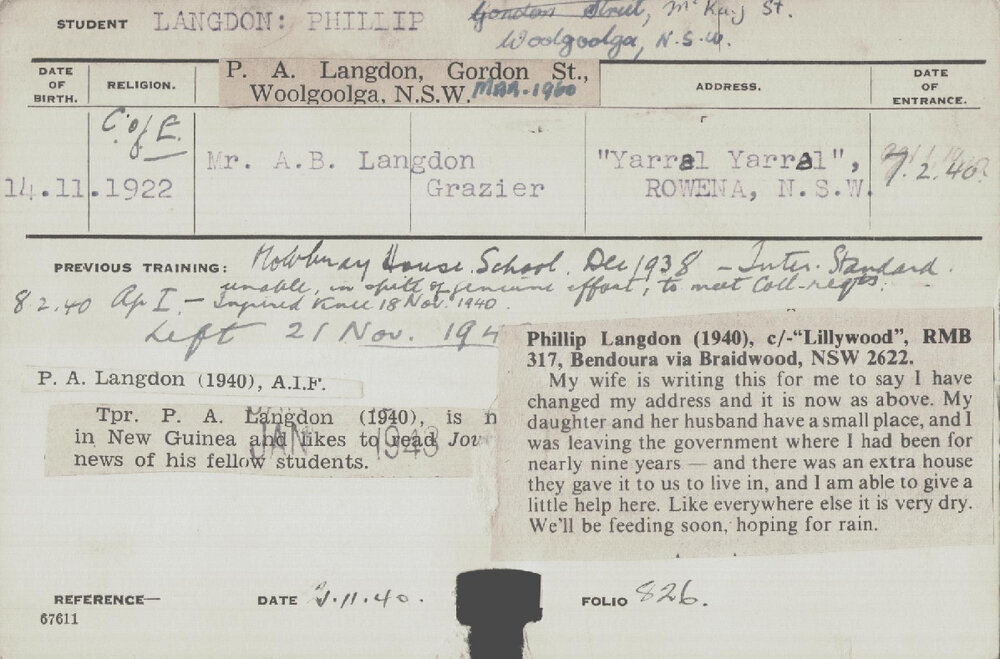 STUDENT LANGDON: PHILLIP
Gordon Street, McKay St.
Woolgoolga, N.S.W.
DATE OF BIRTH.
RELIGION.
P. A. Langdon, Gordon St.,
Woolgoolga, N.S.W. MAR. 1960
ADDRESS.
DATE OF ENTRANCE.
C. of E.
14.11.1922
Mr. A.B. Langdon
Grazier
"Yarral Yarral",
ROWENA, N.S.W.
7.2.40
PREVIOUS TRAINING: Mowbray House School. Dec 1938 - Inter. Standard.
8 2.40 Ag I - unable, in spite of genuine effort, to meet Coll. reqts.
Injured Knee 18 Nov. 1940.
Left 21 Nov. 194
P. A. Langdon (1940), A.I.F.
Tpr. P. A. Langdon (1940), is n
in New Guinea and likes to read Jou
news of his fellow students.
JAN 1943
Phillip Langdon (1940), c/-"Lillywood", RMB
317, Bendoura via Braidwood, NSW 2622.
My wife is writing this for me to say I have
changed my address and it is now as above. My
daughter and her husband have a small place, and I
was leaving the government where I had been for
nearly nine years — and there was an extra house
they gave it to us to live in, and I am able to give a
little help here. Like everywhere else it is very dry.
We'll be feeding soon, hoping for rain.
REFERENCE— DATE 2.11.40. FOLIO 826.
67611